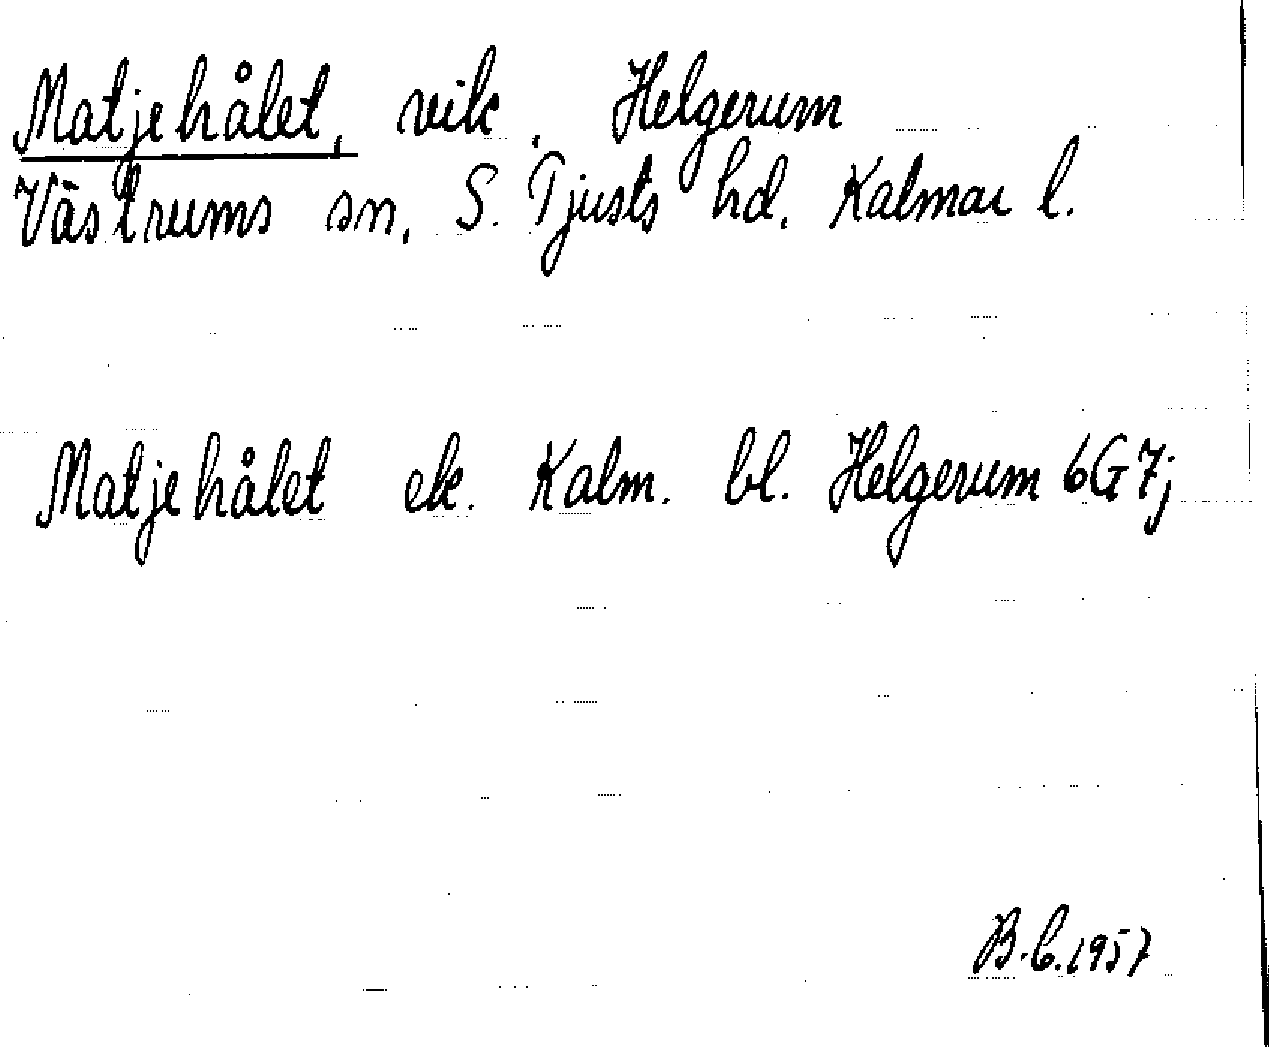 Matjehålet, vik. Helgerum
Västrums sn, S. Tjusts hd. Kalmar l.
Matjehålet ek. Kalm. bl. Helgerum 6G7j
B.b.1957